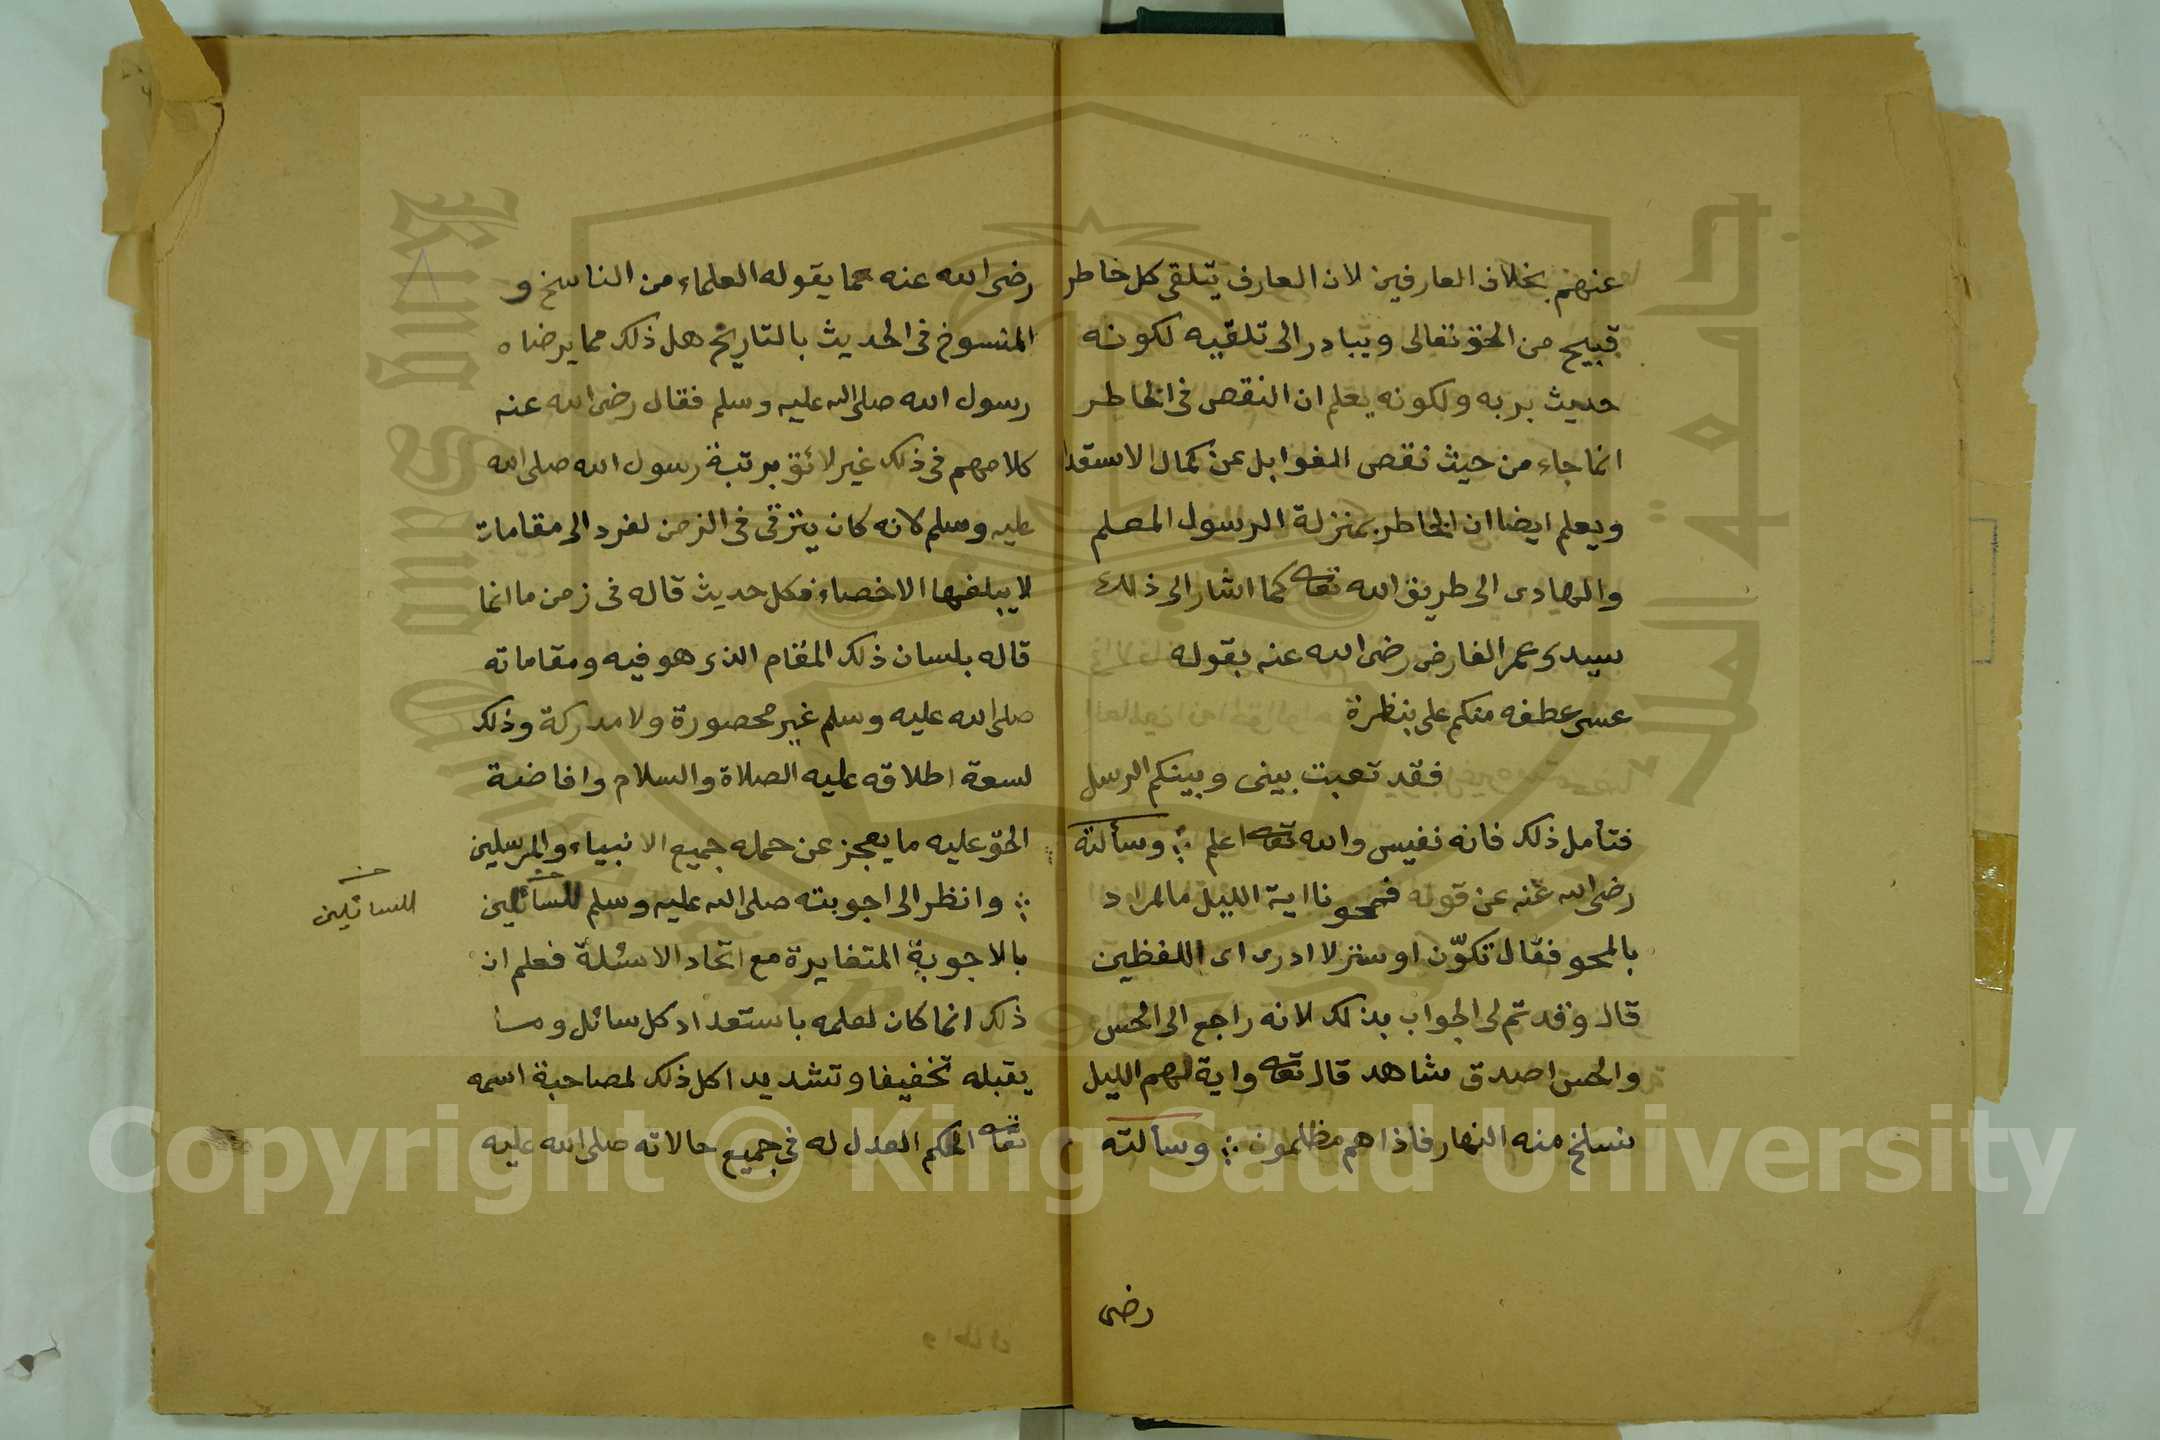 عنهم بخلاف العارفين لان العارف يتلقى كل خاطر
قبيح من الحق تعالى ويبادر الى تلقيه لكونه
حديث بربه ولكونه يعلم ان النقص فى الخاطر
انما جاء من حيث نقص القوابل عن كمال الاستعدا
ويعلم ايضا ان الخاطر بمنزلة الرسول المعلم
والهادى الى طريق الله تعه كما اشار الى ذلك
سيدى عمر الفارض رضى الله عنه بقوله
عسى عطفه منكم على بنظرة
فقد تعبت بينى وبينكم الرسل
فتأمل ذلك فانه نفيس والله تعه اعلم وسألته
رضى الله عنه عن قوله فمحونا اية الليل ما المراد
بالمحو فقال تكوّن او ستر لا ادرى اى اللفظين
قال وقد تم لى الجواب بذلك لانه راجع الى الحس
والحس اصدق شاهد قال تعه واية لهم الليل
نسلخ منه النهار فاذا هم مظلمون وسألته
رضى
رضى الله عنه عما يقوله العلماء من الناسخ و
المنسوخ فى الحديث بالتاريخ هل ذلك مما يرضاه
رسول الله صلى الله عليه وسلم فقال رضى الله عنه
كلامهم فى ذلك غير لائق برتبة رسول الله صلى الله
عليه وسلم لانه كان يترقى فى الزمن لفرد الى مقامات
لا يبلغها الاحصاء فكل حديث قاله فى زمن ما انما
قاله بلسان ذلك المقام الذى هو فيه ومقاماته
صلى الله عليه وسلم غير محصورة ولا مدركة وذلك
لسعة اطلاقه عليه الصلاة والسلام وافاضة
الحق عليه ما يعجز عن حمله جميع الانبياء والمرسلين
وانظر الى اجوبته صلى الله عليه وسلم للسائلين
للسائلين
بالاجوبة المتغايرة مع اتحاد الاسئلة فعلم ان
ذلك انما كان لعلمه باستعداد كل سائل وما
يقبله تخفيفا وتشديدا كل ذلك لمصاحبة اسمه
تعه الحكم العدل له فى جميع حالاته صلى الله عليه
Copyright © King Saud University